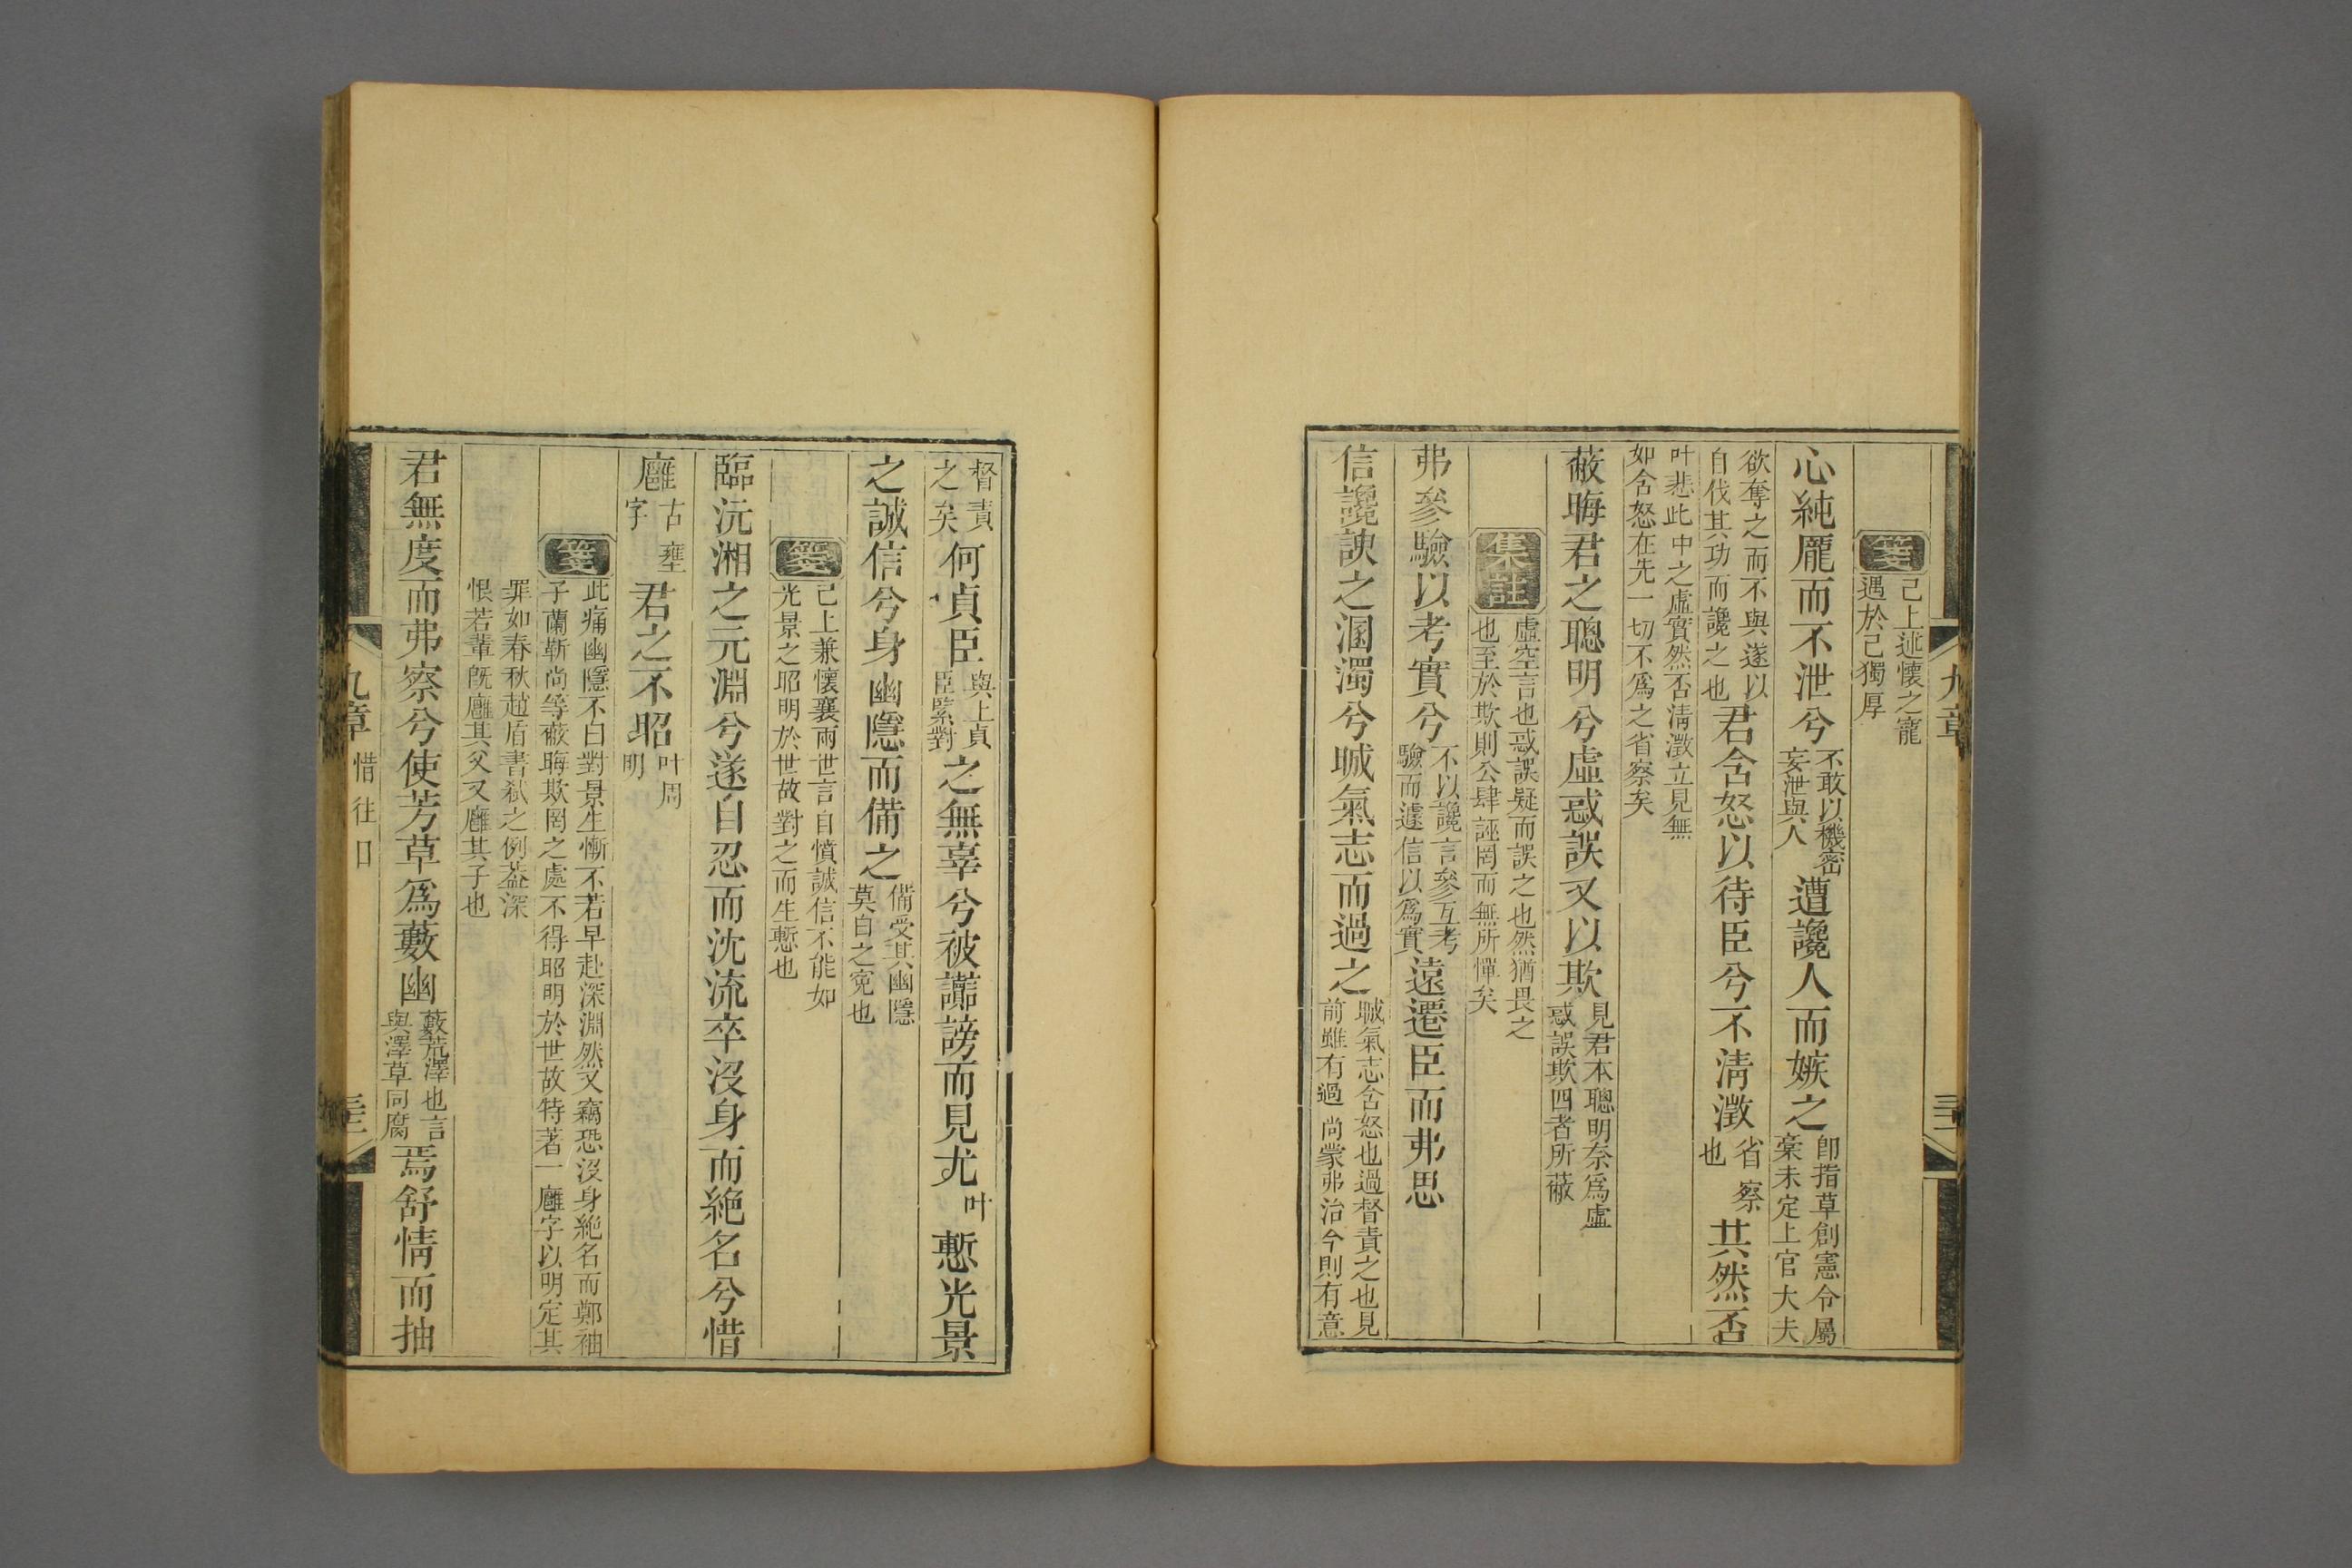 箋 己上述懷之寵
遇於己獨厚
心純厖而不泄兮 不敢以機密
妄泄與人 遭讒人而嫉之 卽指草創憲令屬
稾未定上官大夫
欲奪之而不與遂以
自伐其功而讒之也 君含怒以待臣兮不淸澂 省察
也 其然否
叶悲此中之虛實然否淸澂立見無
如含怒在先一切不爲之省察矣
蔽晦君之聰明兮虛惑誤又以欺 見君本聰明奈爲虛
惑誤欺四者所蔽
集註 虛空言也惑誤疑而誤之也然猶畏之
也至於欺則公肆誣罔而無所憚矣
弗參驗以考實兮 不以讒言參互考
驗而遽信以爲實 遠遷臣而弗思
信讒諛之溷濁兮晠氣志而過之 晠氣志含怒也過督責之也見
前雖有過尚蒙弗治今則有意
督責
之矣 何貞臣 與上貞
臣緊對 之無辜兮被讟謗而見尤 叶 慙光景
之誠信兮身幽隱而備之 備受其幽隱
莫白之寃也
箋 己上兼懷襄兩世言自憤誠信不能如
光景之昭明於世故對之而生慙也
臨沅湘之元淵兮遂自忍而沈流卒沒身而絶名兮惜
廱 古壅
字 君之不昭 叶周
明
箋 此痛幽隱不白對景生慚不若早赴深淵然又竊恐沒身絶名而鄭袖
子蘭靳尚等蔽晦欺罔之處不得昭明於世故特著一廱字以明定其
罪如春秋趙盾書弑之例葢深
恨若輩旣廱其父又廱其子也
君無度而弗察兮使芳草爲藪幽 藪荒澤也言
與澤草同腐 焉舒情而抽
九章 惜往日